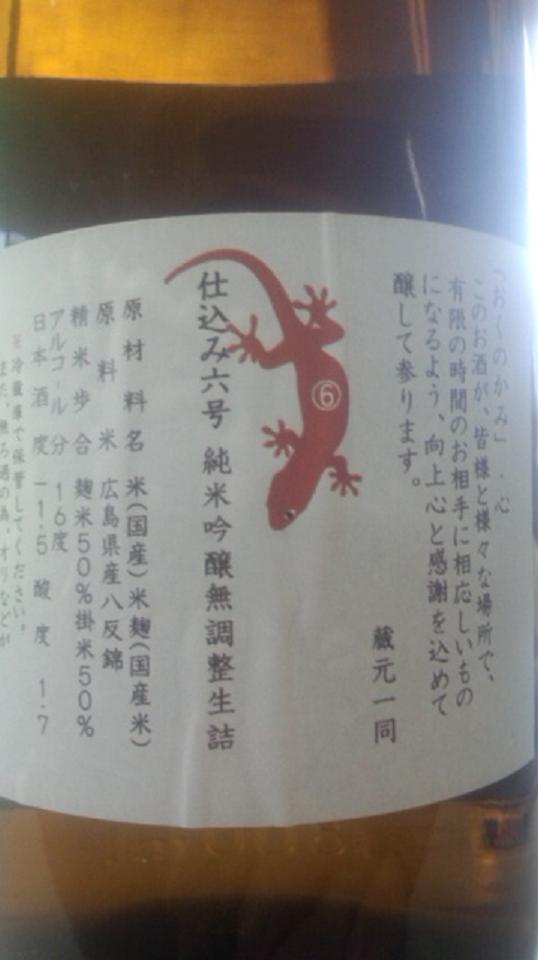 「おくのかみ」
心
このお酒が、皆様と様々な場所で、
有限の時間のお相手に相応しいもの
になるよう、向上心と感謝を込めて
醸して参ります。
蔵元一同
⑥
仕込み六号 純米吟醸無調整生詰
原材料名 米(国産)米麹(国産米)
原料米 広島県産八反錦
精米歩合 麹米50%掛米50%
アルコール分 16度
日本酒度 -1.5 酸度 1.7
※冷蔵庫で保管してください。
また、無ろ過の為、オリなどが